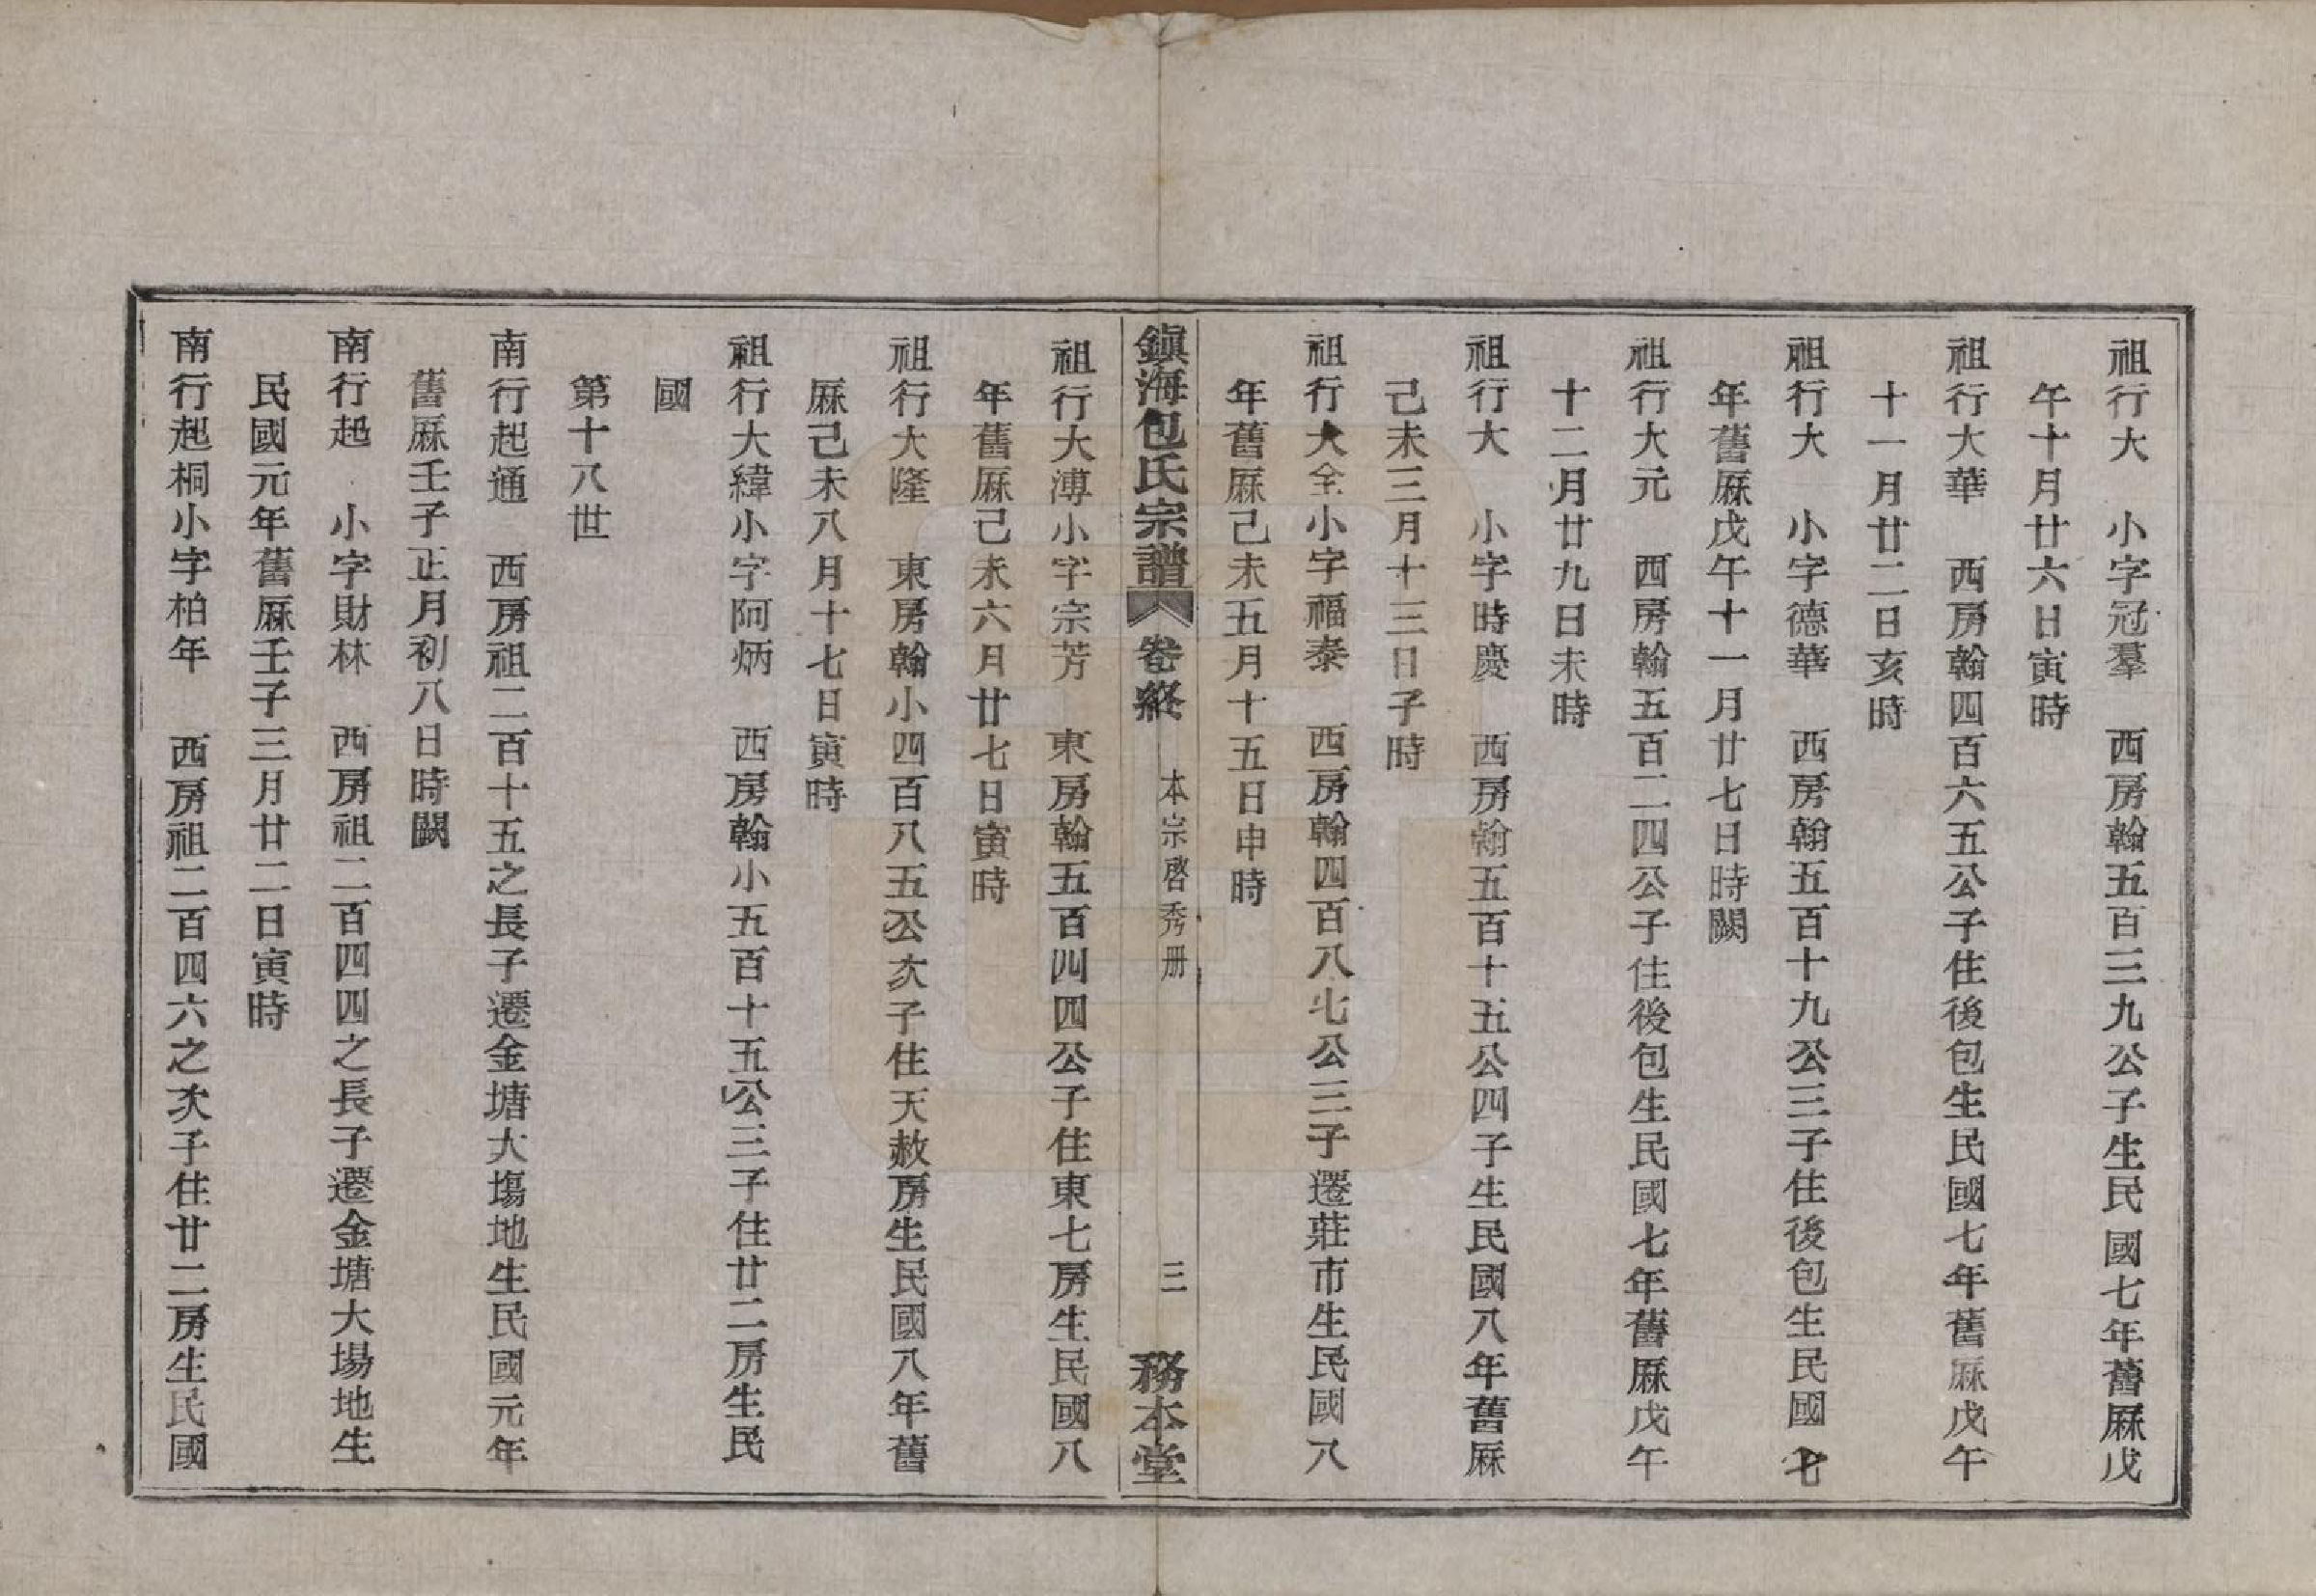 祖行大　小字冠羣　西房翰五百三九公子生民國七年舊厤戊
午十月廿六日寅時
祖行大華　西房翰四百六五公子住後包生民國七年舊厤戊午
十一月廿二日亥時
祖行大　小字德華　西房翰五百十九公三子住後包生民國七
年舊厤戊午十一月廿七日時闕
祖行大元　西房翰五百二四公子住後包生民國七年舊厤戊午
十二月廿九日未時
祖行大　小字時慶　西房翰五百十五公四子生民國八年舊厤
己未三月十三日子時
祖行大全小字福泰　西房翰四百八七公三子遷莊市生民國八
年舊厤己未五月十五日申時
鎮海包氏宗譜　卷終　本宗啓秀册　三　務本堂
祖行大溥小字宗芳　東房翰五百四四公子住東七房生民國八
年舊厤己未六月廿七日寅時
祖行大隆　東房翰小四百八五公次子住天赦房生民國八年舊
厤己未八月十七日寅時
祖行大緯小字阿炳　西房翰小五百十五公三子住廿二房生民
國
第十八世
南行起通　西房祖二百十五之長子遷金塘大塲地生民國元年
舊厤壬子正月初八日時闕
南行起　小字財林　西房祖二百四四之長子遷金塘大場地生
民國元年舊厤壬子三月廿二日寅時
南行起桐小字柏年　西房祖二百四六之次子住廿二房生民國